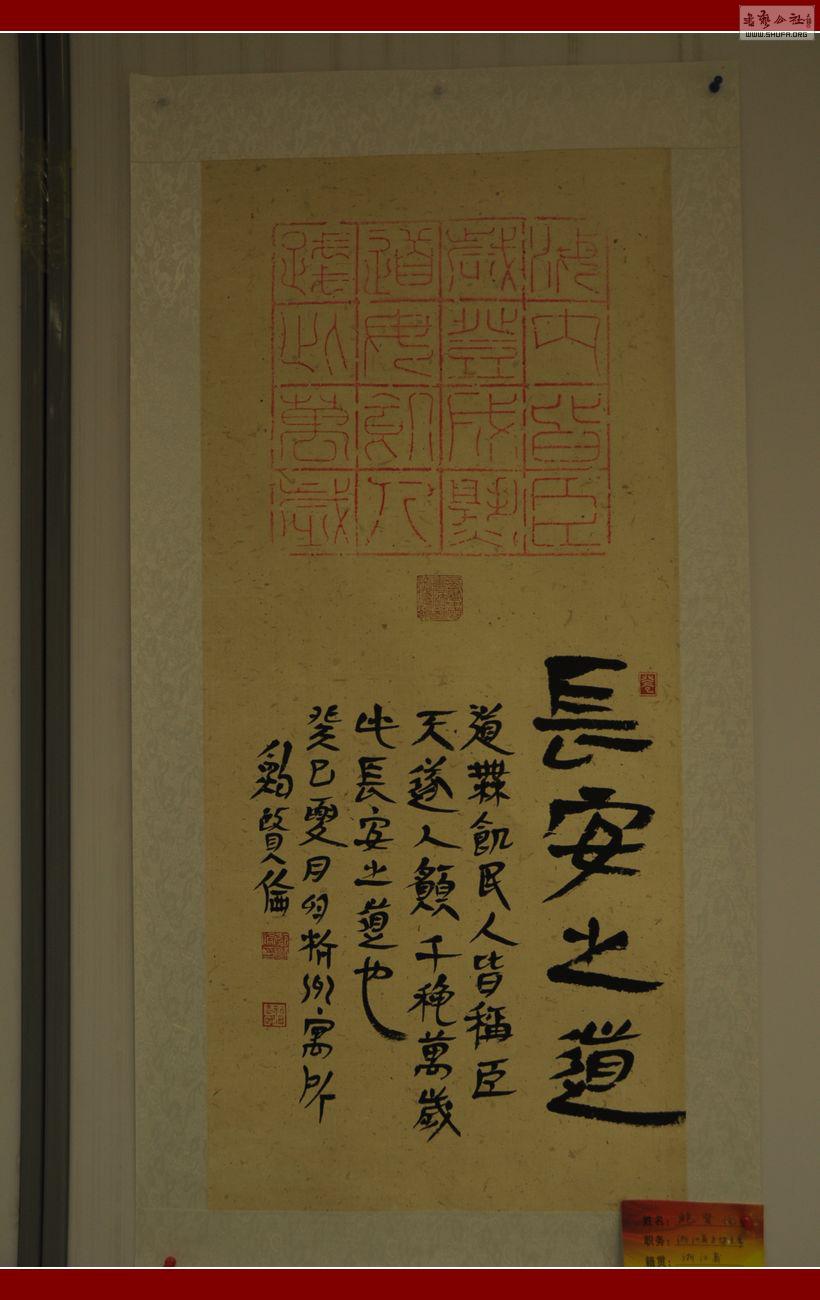 海内皆臣
歲登成熟
道毋飢人
踐此萬歲
長安之道
道無飢民人皆稱臣
天遂人願千穐萬歲
此長安之道也
癸巳夏月於杭州寓所
鮑賢倫
書法公社
WWW.SHUFA.ORG
姓名: 鮑賢倫
职务:
籍贯: 浙江